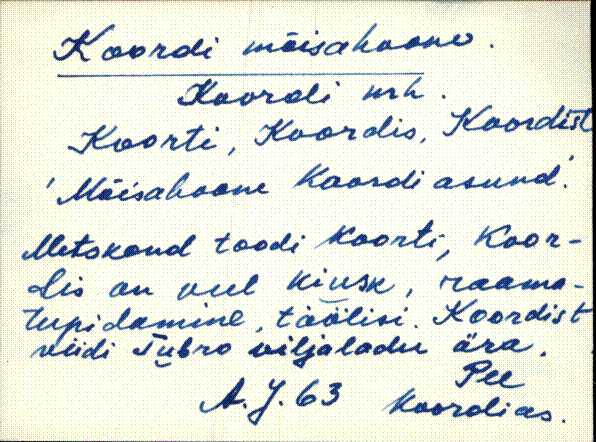 Koordi mõisahoone.
Koordi mh.
Koorti, Koordis, Koordist
'Mõisahoone Koordi asund.'
Metskond toodi Koorti, Koor-
dis on veel kiusk, raama-
tupidamine, töölisi. Koordist
viidi Tubro viljaladu ära.
A. J. 63 Pee
Koordi as.